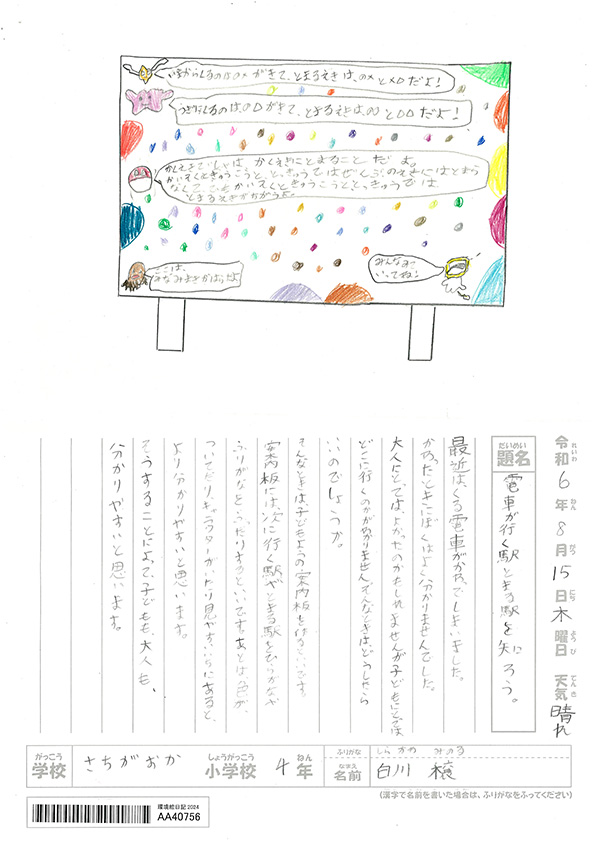 いまからくるのは〇×がきて、とまるえきは、〇×と×ロだよ！
つぎにくるのは、〇ロがきて、とまるえきは、〇〇とロロだよ！
かくえきていしゃはかくえきにとまることだよ。
かいそくときゅうこうと、とっきゅうではぜんぶのえきにはとまら
なくて、ことかいそくときゅうこうと、とっきゅうでは
とまるえきがちがうよ。
ここは、
みなみまきがはらだよ
みんなまで
いってね！
令和6年8月15日木曜日 天気晴れ
れいわ ねん がつ にち ようび てんき
だいめい
題名 電車が行く駅ととまる駅を知ろう。
最近よくくる電車がかわってしまいました。
かわったときにぼくはよく分かりませんでした。
大人にとっては、よかったのかもしれませんが子どもにとっては
どこに行くのかがわかりません。そんなときはどうしたら
いいのでしょうか。
そんなときは子どもようの案内板を作るといいです。
案内板には、次に行く駅やとまる駅をひらがなや
ふりがなをふったりするといいです。あとは、色が
ついてたりキャラクターがいたり見やすいいちにあると、
より分かりやすいと思います。
そうすることによって、子どもも、大人も、
分かりやすいと思います。
がっこう しょうがっこう ねん
学校 さちがおか 小学校 4年
ふりがな しらかわ みのる
なまえ
名前 白川 稜
(漢字で名前を書いた場合は、ふりがなをふってください)
環境絵日記2024
AA40756